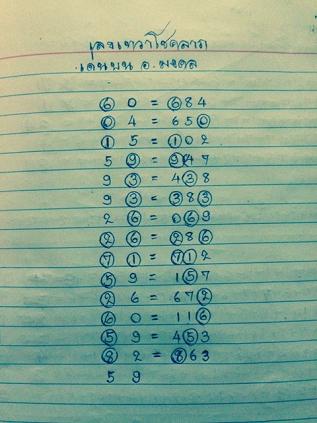 เลขเทวาโชคลาภ
เด่นบน อ. มงคล
6 0 = 684
0 4 = 650
1 5 = 102
5 9 = 947
9 3 = 438
9 3 = 383
2 6 = 069
2 6 = 286
7 1 = 712
5 9 = 157
2 6 = 672
6 0 = 116
5 9 = 453
8 2 = 863
5 9